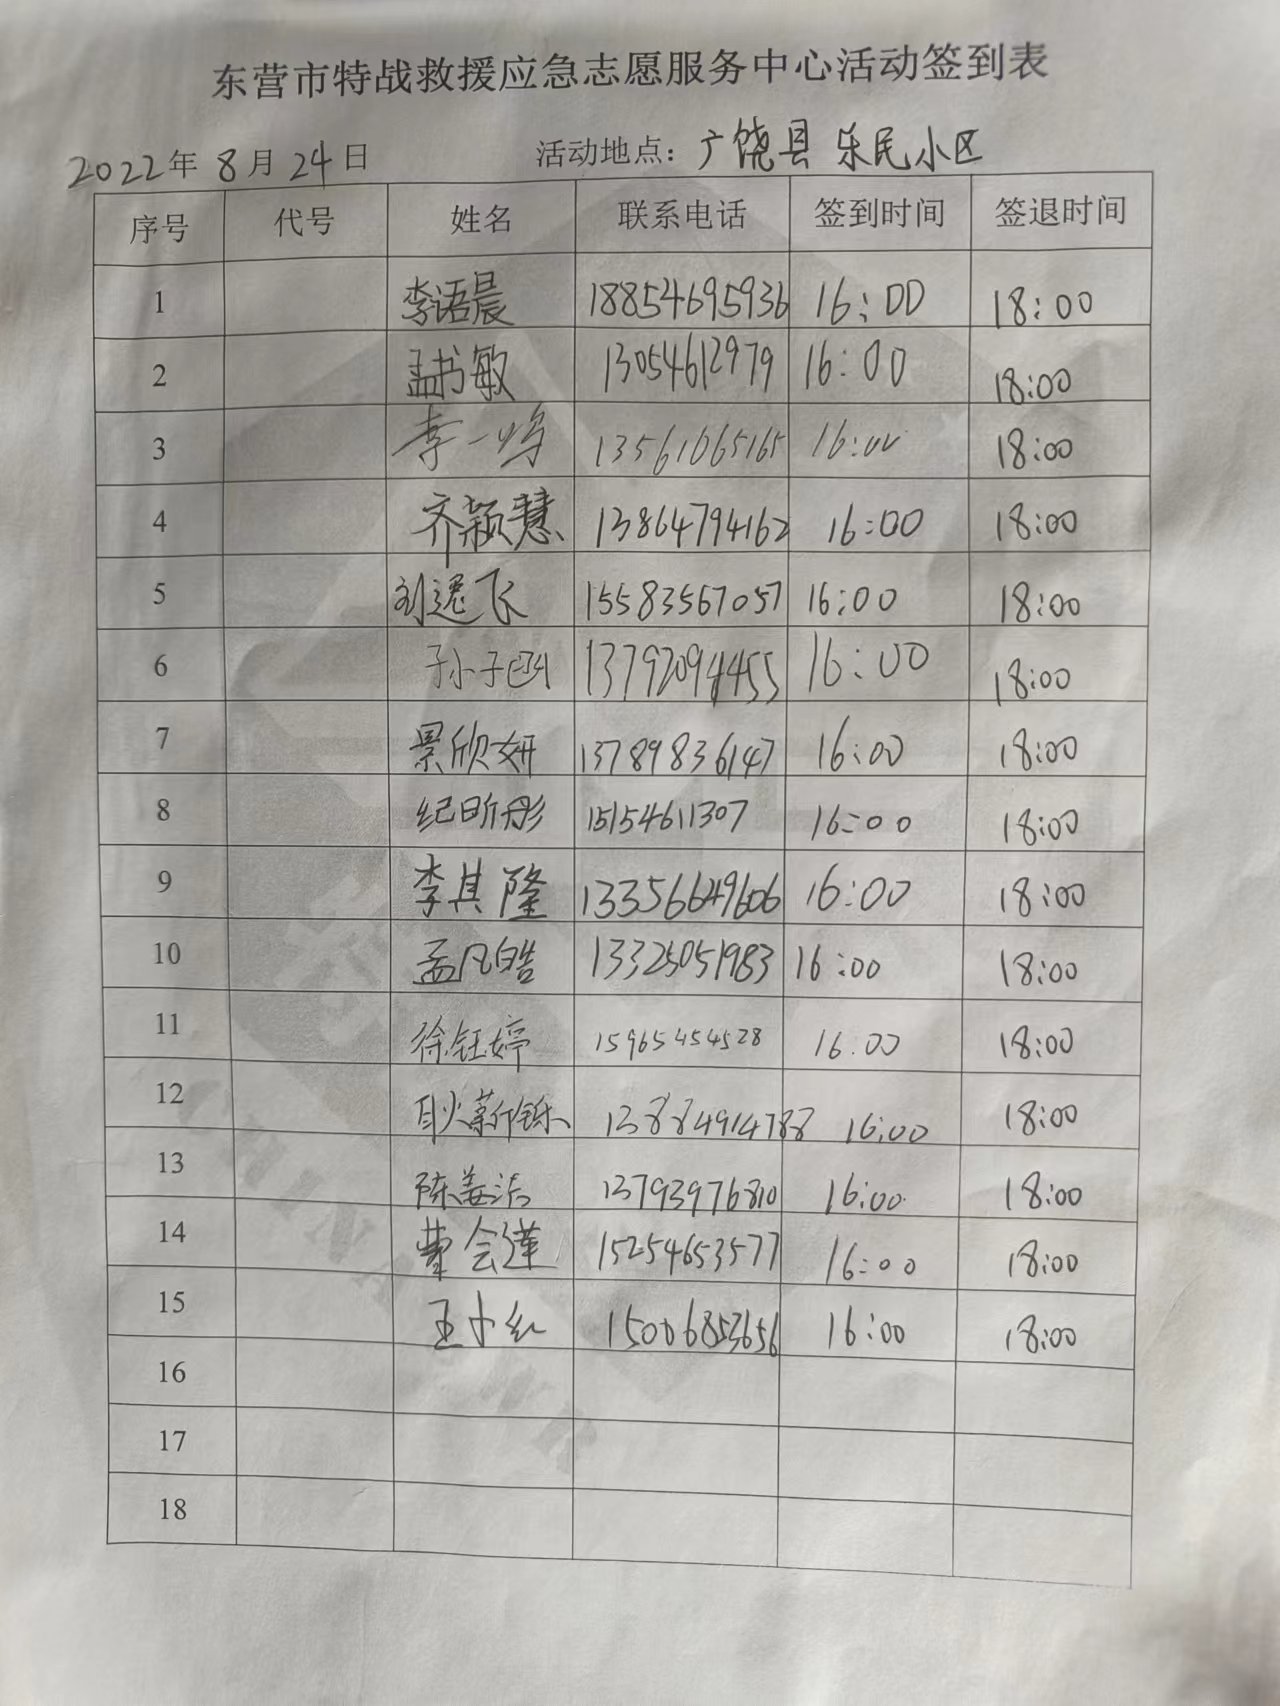 东营市特战救援应急志愿服务中心活动签到表
2022年8月24日 活动地点：广饶县 乐民小区
序号 代号 姓名 联系电话 签到时间 签退时间
1 李语晨 18854695936 16:00 18:00
2 孟书敏 13054612979 16:00 18:00
3 李一鸣 13561065165 16:00 18:00
4 齐颖慧 13864794162 16:00 18:00
5 刘逸飞 15583567057 16:00 18:00
6 孙子函 13792094455 16:00 18:00
7 景欣妍 13789836147 16:00 18:00
8 纪昕彤 15154611307 16:00 18:00
9 李其隆 13356649606 16:00 18:00
10 孟凡皓 13325051983 16:00 18:00
11 徐钰婷 15965454528 16:00 18:00
12 耿薪铄 13884914788 16:00 18:00
13 陈姜洁 13793976810 16:00 18:00
14 曹会莲 15254653577 16:00 18:00
15 王小红 15006853656 16:00 18:00
16
17
18